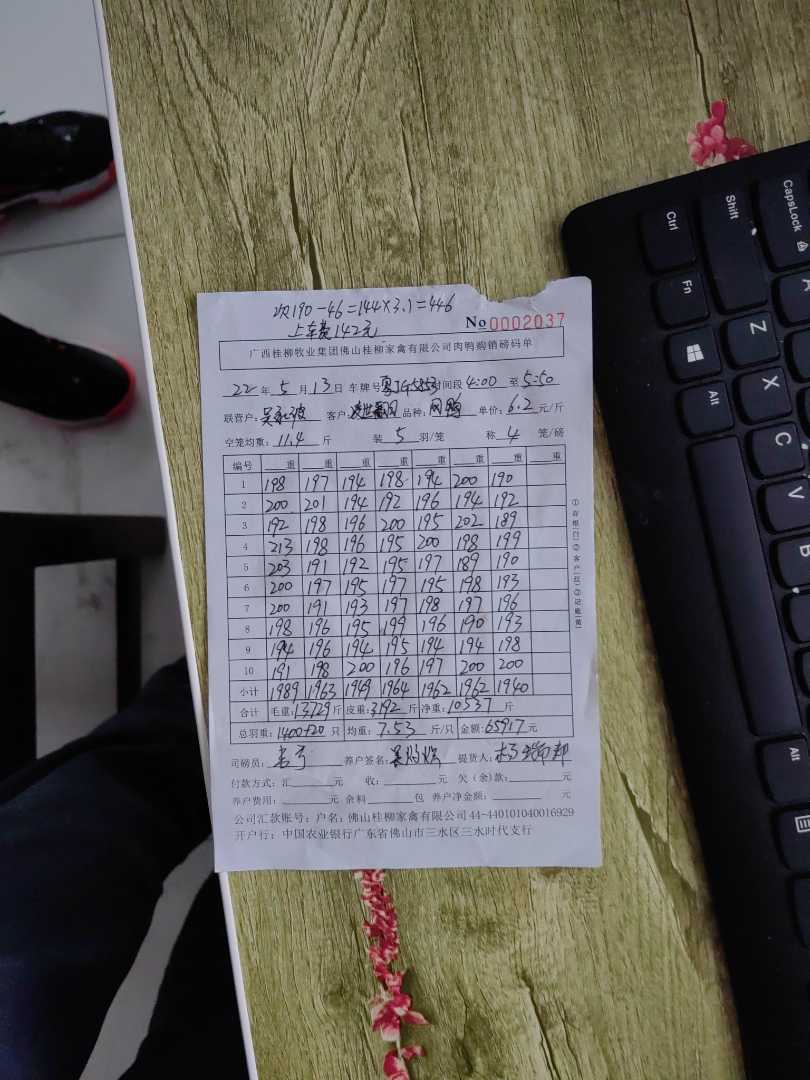 次190-46=144×3.1=446
上车费142元
No 0002037
广西桂柳牧业集团佛山桂柳家禽有限公司肉鸭购销磅码单
22年5月13日 车牌号 时间段4:00至5:50
联营户: 客户: 品种: 单价:6.2元/斤
空笼均重:11.4斤 装5羽/笼 称4笼/磅
编号 重 重 重 重 重 重 重 重
1 198 197 194 198 194 200 190
2 200 201 194 192 196 194 192
3 192 198 196 200 195 202 189
4 213 198 196 195 200 198 199
5 203 191 192 195 197 189 190
6 200 197 195 197 195 198 193
7 200 191 193 197 198 197 196
8 198 196 195 199 196 190 193
9 194 196 194 195 194 194 198
10 191 198 200 196 197 200 200
小计 1989 1963 1949 1964 1962 1962 1940
合计 毛重:13729斤 皮重:3192斤 净重:10537斤
总羽重:1400+20只 均重:7.53斤/只 金额:65917元
司磅员: 养户签名: 提货人:
付款方式:汇 元 收: 元 欠(余)款: 元
养户费用: 元 余料 包 养户净金额: 元
公司汇款账号:户名:佛山桂柳家禽有限公司44-440101040016929
开户行:中国农业银行广东省佛山市三水区三水时代支行
CapsLock
Shift
Ctrl
A
Z
Fn
X
Alt
C
V
B
N
M
Alt